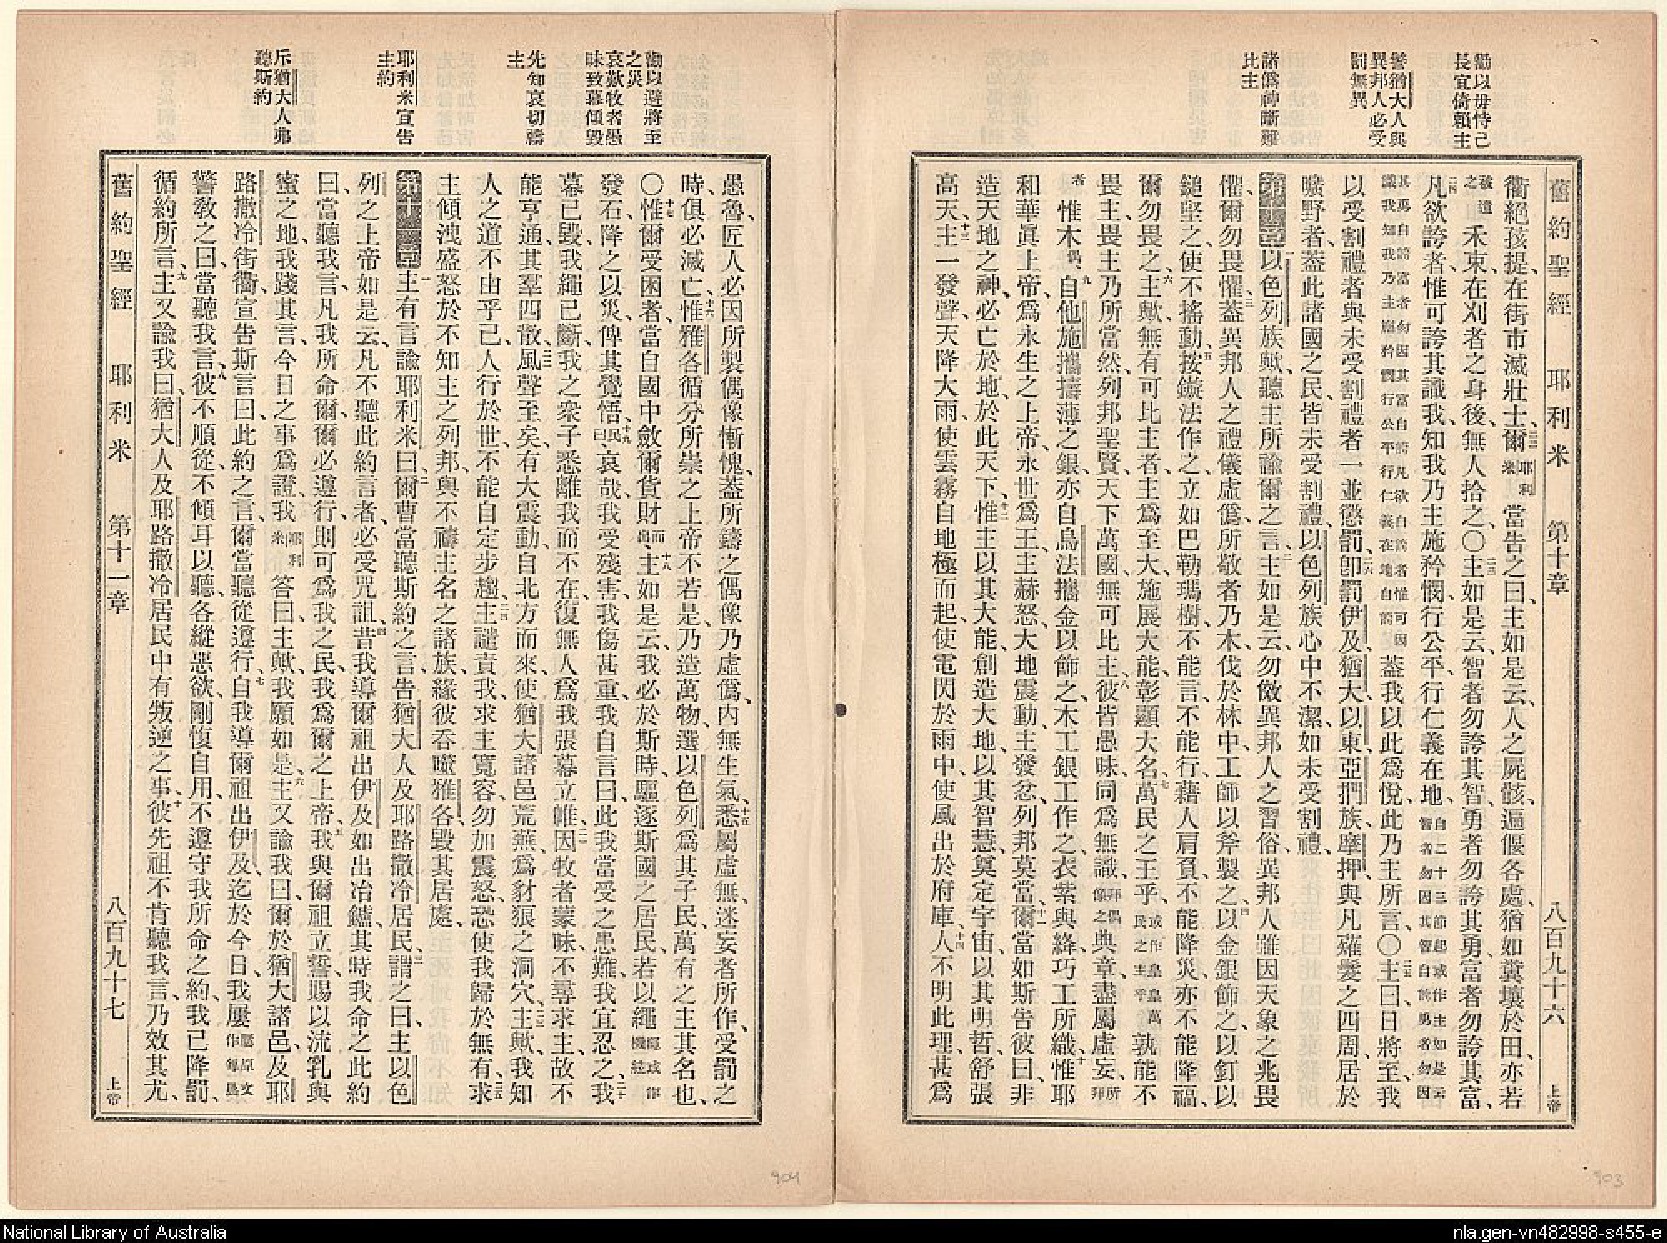 勸以毋恃己
長宜倚賴主
警猶大人與
異邦人必受
罰無異
諸僞神斷難
比主
舊約聖經 耶利米 第十章 八百九十六 上帝
衢絕孩提、在街市滅壯士、二二爾耶利米當告之曰、主如是云、人之屍骸、遍偃各處、猶如糞壤於田、亦若
禾束、在刈者之身後、無人拾之、○二三主如是云、智者勿誇其智、勇者勿誇其勇、富者勿誇其富、
二四凡欲誇者、惟可誇其識我、知我乃主、施矜憫、行公平、行仁義在地、
蓋我以此爲悅、此乃主所言、○二五主曰、日將至、我
以受割禮者、與未受割禮者、一並懲罰、二六即罰伊及、猶大、以東、亞捫族、摩押、與凡薙鬢之四周、居於
曠野者、蓋此諸國之民、皆未受割禮、以色列族心中不潔、如未受割禮、
第十章一以色列族歟、聽主所諭爾之言、二主如是云、勿傚異邦人之習俗、異邦人雖因天象之兆畏
懼、爾勿畏懼、三蓋異邦人之禮儀虛僞、所敬者乃木、伐於林中、工師以斧製之、四以金銀飾之、以釘以
鎚堅之、使不搖動、五按鏇法作之、立如巴勒瑪樹、不能言、不能行、藉人肩負、不能降災、亦不能降福、
爾勿畏之、六主歟、無有可比主者、主爲至大、施展大能、彰顯大名、七萬民之王乎、孰能不
畏主、畏主乃所當然、列邦聖賢、天下萬國、無可比主、八彼皆愚昧、同爲無識、與章盡屬虛妄、
惟木偶、九自他施攜擣薄之銀、亦自烏法攜金以飾之、木工銀工作之、衣紫與絳、巧工所織、十惟耶
和華眞上帝、爲永生之上帝、永世爲王、主赫怒、大地震動、主發忿、列邦莫當、十一爾當如斯告彼曰、非
造天地之神、必亡於地、於此天下、十二惟主以其大能、創造大地、以其智慧、奠定宇宙、以其明哲、舒張
高天、十三主一發聲、天降大雨、使雲霧自地極而起、使電閃於雨中、使風出於府庫、十四人不明此理、甚爲
勸以避將至
之災
哀歎牧者愚
昧致幕傾毀
先知哀切禱
主
耶利米宣告
主約
斥猶大人弗
聽斯約
愚魯、匠人必因所製偶像慚愧、蓋所鑄之偶像、乃虛僞、內無生氣、十五悉屬虛無、迷妄者所作、受罰之
時、俱必滅亡、十六惟雅各循分所崇之上帝不若是、乃造萬物、選以色列爲其子民、萬有之主其名也、
○十七惟爾受困者、當自國中斂爾貨財、十八主如是云、我必於斯時、驅逐斯國之居民、若以繩
發石、降之以災、俾其覺悟、十九哀哉、我受殘害、我傷甚重、我自言曰、此我當受之患難、我宜忍之、二十我
幕已毀、我繩已斷、我之衆子、悉離我而不在、復無人爲我張幕立帷、二一因牧者蒙昧、不尋求主、故不
能亨通、其羣四散、二二風聲至矣、有大震動、自北方而來、使猶大諸邑荒蕪、爲豺狼之洞穴、二三主歟、我知
人之道不由乎己、人行於世、不能自定步趨、二四主譴責我、求主寬容、勿加震怒、恐使我歸於無有、二五求
主傾洩盛怒、於不知主之列邦、與不禱主名之諸族、緣彼吞噬雅各、毀其居處、
第十一章一主有言諭耶利米曰、二爾曹當聽斯約之言、告猶大人及耶路撒冷居民、三謂之曰、主以色
列之上帝如是云、凡不聽此約言者、必受咒詛、四昔我導爾祖出伊及、如出冶鑪、其時我命之此約
曰、當聽我言、凡我所命爾、爾必遵行、則可爲我之民、我爲爾之上帝、五我與爾祖立誓、賜以流乳與
蜜之地、我踐其言、今日之事爲證、我耶利米答曰、主歟、我願如是、六主又諭我曰、爾於猶大諸邑、及耶
路撒冷街衢、宣告斯言曰、此約之言、爾當聽從遵行、七自我導爾祖出伊及、迄於今日、我屢
警教之曰、當聽我言、八彼不順從、不傾耳以聽、各縱惡欲、剛愎自用、不遵守我所命之約、我已降罰、
循約所言、九主又諭我曰、猶大人及耶路撒冷居民中、有叛逆之事、十彼先祖不肯聽我言、乃效其尤、
舊約聖經 耶利米 第十一章 八百九十七 上帝
904
903
National Library of Australia
nla.gen-vn482998-s455-e